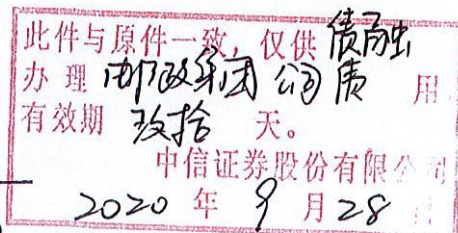 此件与原件一致，仅供 债融
办理 邮政集团 公司债 用，
有效期 玖拾 天。
中信证券股份有限公司
2020 年 9 月 28 日